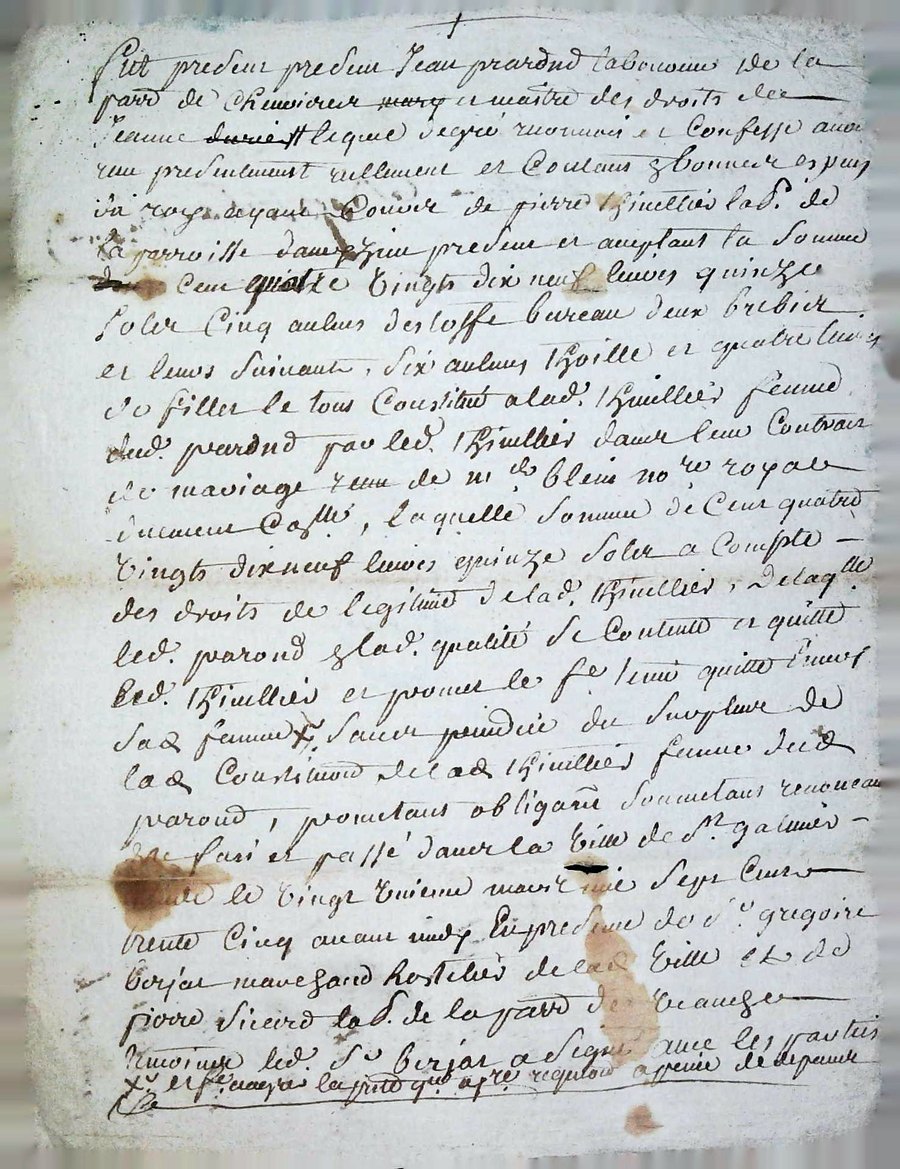 Fut present present Jean parond laboureur de la
parr de Chevrieres mary et maitre des droits de
Jeanne lequel de gré reconnoit et Confesse avoir
receu presentement reellement et Contant en bonnes especes
du roy ayant Cours de pierre Thiuellier lab.r de
la parroisse present et aceptant la somme
Cent quatre vingts dix neuf livres quinze
solz Cinq aulnes destoffe bureau deux brebier
et leurs suivants, six aulnes thoille et quatre livres
de fillet le tout Constitué a lad. Thiuellier femme
dud. parond par led. Thiuellier dans leur Contrat
de mariage receu de m.e blein no.re royal
duement Con.llé, laquelle somme de Cent quatre
vingts dix neuf livres quinze solz a Compte
des droits de legitime de lad. Thiuellier, de laq.lle
led. parond en lad. qualité se Contente et quitte
led. Thiuellier et promet le fe tenir quitte envers
sad femme x sans prejudice du surplus de
lad Constitution de lad Thiuellier femme dud
parond, prometans obligeant soumetans renonceant
fait et passé dans la ville de S.t galmier
le vingt uniesme mars mil sept Cents
trente Cinq avant midy En presence de s.r gregoire
berjat marchand hostelier de lad ville et de
pierre sicard lab.r de la parr de
temoins led. s.r berjat a signé avec les parties
x